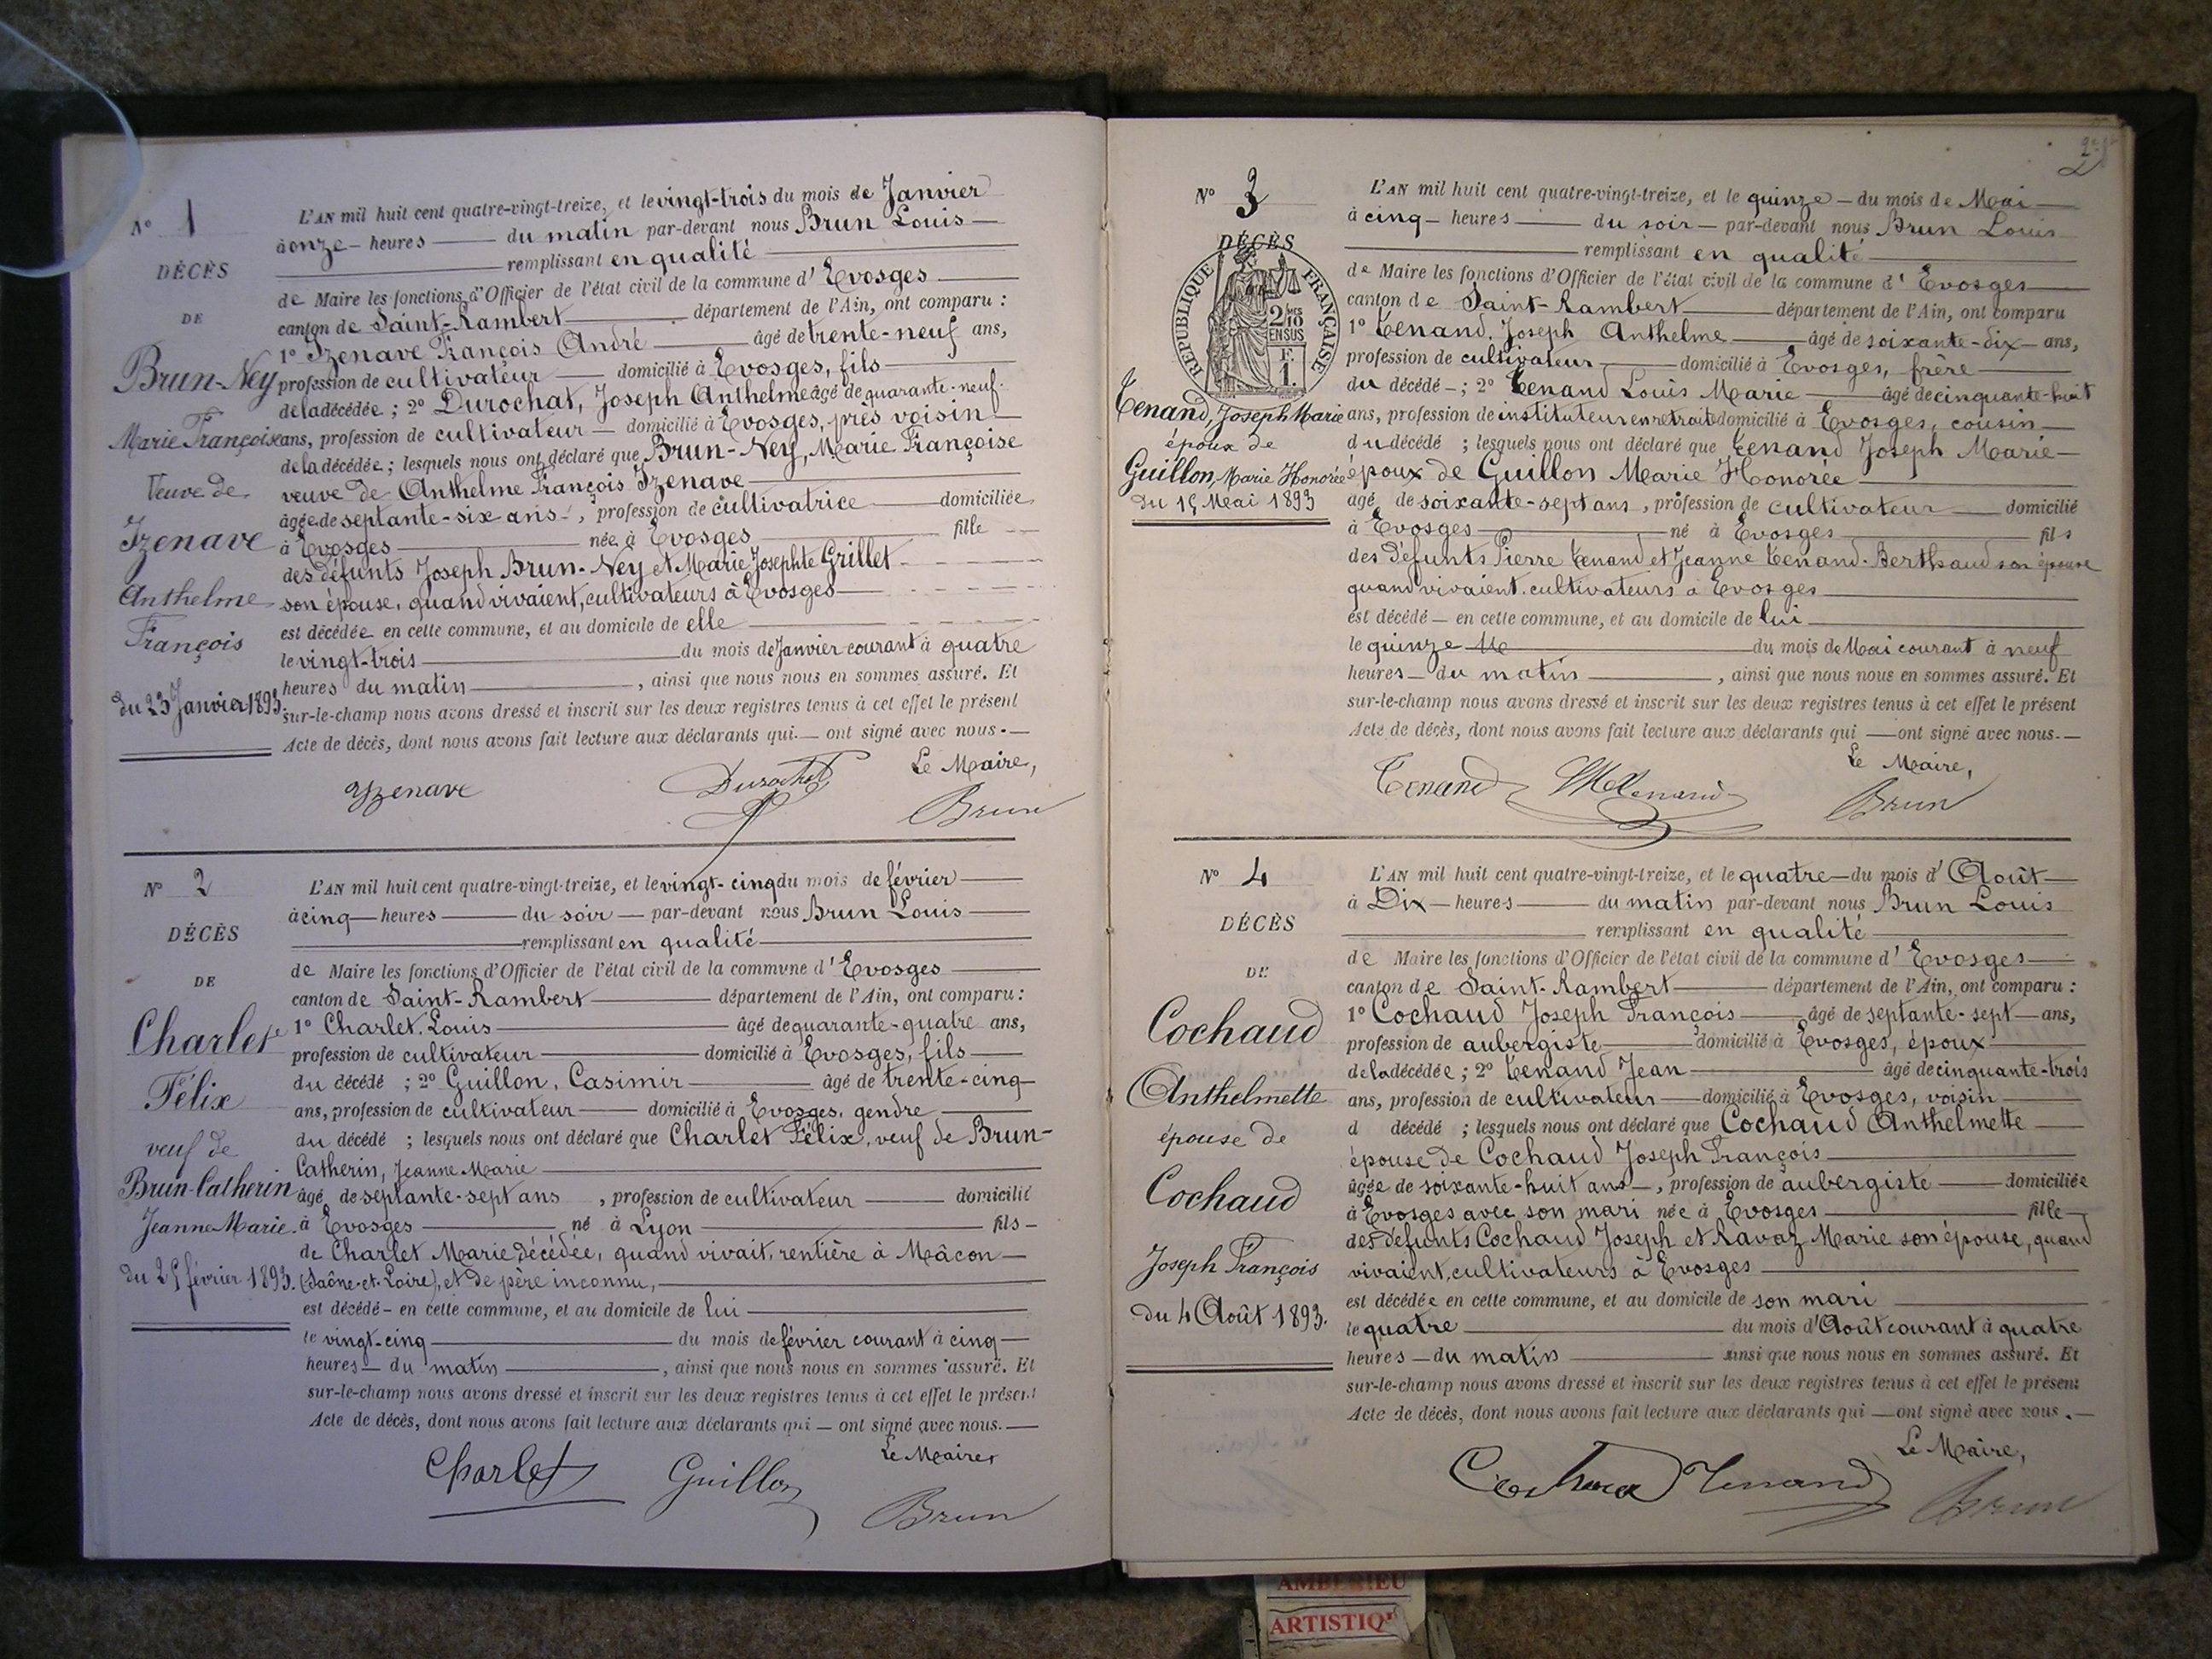 N° 1
DÉCÈS
DE
Brun-Ney
Marie Françoise
Veuve de
Izenave
Anthelme
François
du 23 Janvier 1893.
L'AN mil huit cent quatre-vingt-treize, et le vingt-trois du mois de Janvier
à onze heures du matin par-devant nous Brun Louis
remplissant en qualité
de Maire les fonctions d'Officier de l'état civil de la commune d'Evosges
canton de Saint-Rambert département de l'Ain, ont comparu :
1° Izenave François André âgé de trente-neuf ans,
profession de cultivateur domicilié à Evosges, fils
de la décédée ; 2° Durochat, Joseph Anthelme âgé de quarante-neuf
ans, profession de cultivateur domicilié à Evosges, près voisin
de la décédée ; lesquels nous ont déclaré que Brun-Ney, Marie Françoise
veuve de Anthelme François Izenave
âgée de septante-six ans, profession de cultivatrice domiciliée
à Evosges née à Evosges fille
des défunts Joseph Brun-Ney et Marie Josephte Grillet
son épouse, quand vivaient, cultivateurs à Evosges
est décédée en cette commune, et au domicile de elle
le vingt-trois du mois de Janvier courant à quatre
heures du matin, ainsi que nous nous en sommes assuré. Et
sur-le-champ nous avons dressé et inscrit sur les deux registres tenus à cet effet le présent
Acte de décès, dont nous avons fait lecture aux déclarants qui ont signé avec nous.
Le Maire,
Yzenave Durochat Brun
N° 2
DÉCÈS
DE
Charlet
Félix
veuf de
Brun-Catherin
Jeanne Marie.
du 25 février 1893.
L'AN mil huit cent quatre-vingt-treize, et le vingt-cinq du mois de février
à cinq heures du soir par-devant nous Brun Louis
remplissant en qualité
de Maire les fonctions d'Officier de l'état civil de la commune d'Evosges
canton de Saint-Rambert département de l'Ain, ont comparu :
1° Charlet, Louis âgé de quarante-quatre ans,
profession de cultivateur domicilié à Evosges, fils
du décédé ; 2° Guillon, Casimir âgé de trente-cinq
ans, profession de cultivateur domicilié à Evosges, gendre
du décédé ; lesquels nous ont déclaré que Charlet Félix, veuf de Brun-
Catherin, Jeanne Marie
âgé de septante-sept ans, profession de cultivateur domicilié
à Evosges né à Lyon fils
de Charlet Marie décédée, quand vivait, rentière à Mâcon
(Saône-et-Loire), et de père inconnu,
est décédé en cette commune, et au domicile de lui
le vingt-cinq du mois de février courant à cinq
heures du matin, ainsi que nous nous en sommes assuré. Et
sur-le-champ nous avons dressé et inscrit sur les deux registres tenus à cet effet le présent
Acte de décès, dont nous avons fait lecture aux déclarants qui ont signé avec nous.
Le Maire,
Charlet Guillon Brun
N° 3
DÉCÈS
RÉPUBLIQUE FRANÇAISE
2 10
EN SUS
1.
Tenand, Joseph Marie
époux de
Guillon, Marie Honorée
du 15 Mai 1893
L'AN mil huit cent quatre-vingt-treize, et le quinze du mois de Mai
à cinq heures du soir par-devant nous Brun Louis
remplissant en qualité
de Maire les fonctions d'Officier de l'état civil de la commune d'Evosges
canton de Saint-Rambert département de l'Ain, ont comparu
1° Tenand, Joseph Anthelme âgé de soixante-dix ans,
profession de cultivateur domicilié à Evosges, frère
du décédé ; 2° Tenand Louis Marie âgé de cinquante-huit
ans, profession de instituteur en retraite domicilié à Evosges, cousin
du décédé ; lesquels nous ont déclaré que Tenand Joseph Marie
époux de Guillon Marie Honorée
âgé de soixante-sept ans, profession de cultivateur domicilié
à Evosges né à Evosges fils
des défunts Pierre Tenand et Jeanne Tenand-Berthaud son épouse
quand vivaient, cultivateurs à Evosges
est décédé en cette commune, et au domicile de lui
le quinze du mois de Mai courant à neuf
heures du matin, ainsi que nous nous en sommes assuré. Et
sur-le-champ nous avons dressé et inscrit sur les deux registres tenus à cet effet le présent
Acte de décès, dont nous avons fait lecture aux déclarants qui ont signé avec nous.
Le Maire,
Tenand Tenand Brun
N° 4
DÉCÈS
DE
Cochaud
Anthelmette
épouse de
Cochaud
Joseph François
du 4 Août 1893.
L'AN mil huit cent quatre-vingt-treize, et le quatre du mois d'Août
à Dix heures du matin par-devant nous Brun Louis
remplissant en qualité
de Maire les fonctions d'Officier de l'état civil de la commune d'Evosges
canton de Saint-Rambert département de l'Ain, ont comparu :
1° Cochaud Joseph François âgé de septante-sept ans,
profession de aubergiste domicilié à Evosges, époux
de la décédée ; 2° Tenand Jean âgé de cinquante-trois
ans, profession de cultivateur domicilié à Evosges, voisin
d décédé ; lesquels nous ont déclaré que Cochaud Anthelmette
épouse de Cochaud Joseph François
âgée de soixante-huit ans, profession de aubergiste domiciliée
à Evosges avec son mari née à Evosges fille
des défunts Cochaud Joseph et Ravaz Marie son épouse, quand
vivaient, cultivateurs à Evosges
est décédée en cette commune, et au domicile de son mari
le quatre du mois d'Août courant à quatre
heures du matin ainsi que nous nous en sommes assuré. Et
sur-le-champ nous avons dressé et inscrit sur les deux registres tenus à cet effet le présent
Acte de décès, dont nous avons fait lecture aux déclarants qui ont signé avec nous.
Le Maire,
Cochaud Tenand Brun
ARTISTIQ